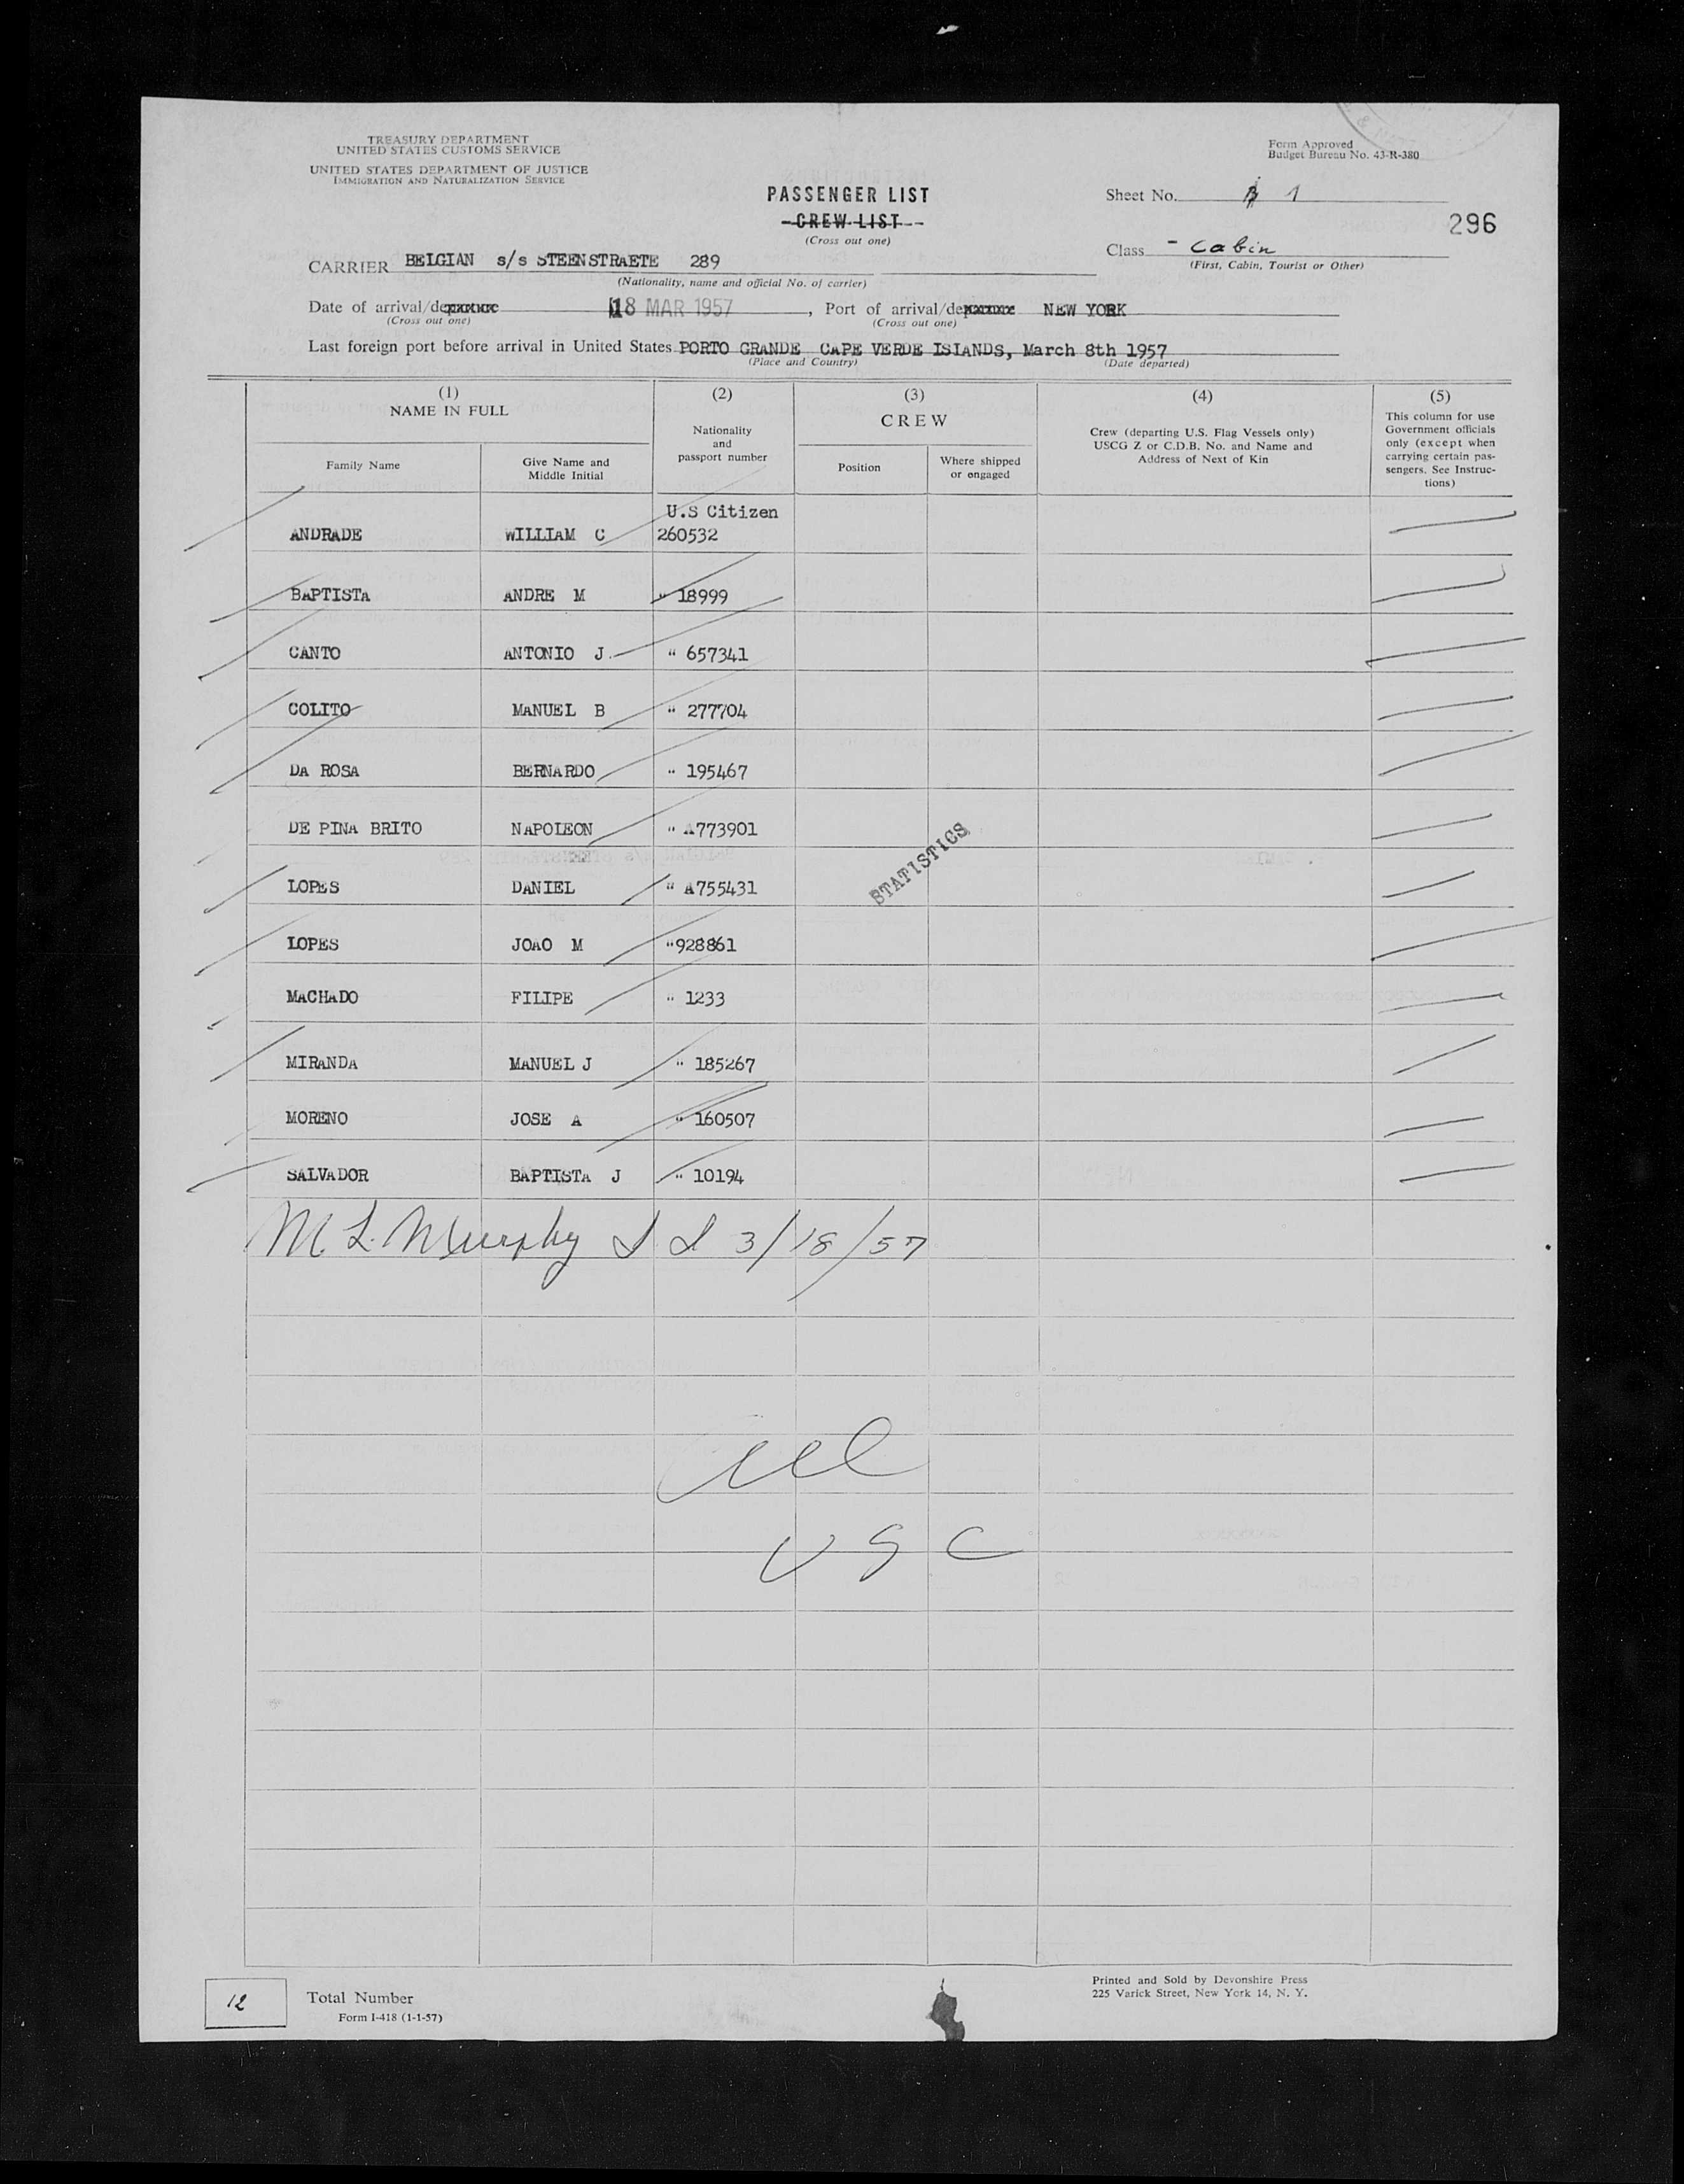 TREASURY DEPARTMENT
UNITED STATES CUSTOMS SERVICE
UNITED STATES DEPARTMENT OF JUSTICE
IMMIGRATION AND NATURALIZATION SERVICE
Form Approved
Budget Bureau No. 43-R-380
PASSENGER LIST
CREW LIST
(Cross out one)
Sheet No. 1
296
Class - Cabin
(First, Cabin, Tourist or Other)
CARRIER BELGIAN s/s STEENSTRAETE 289
(Nationality, name and official No. of carrier)
Date of arrival/dexxxxxx 18 MAR 1957, Port of arrival/dexxxxxx NEW YORK
(Cross out one) (Cross out one)
Last foreign port before arrival in United States PORTO GRANDE CAPE VERDE ISLANDS, March 8th 1957
(Place and Country) (Date departed)
(1) (2) (3) (4) (5)
NAME IN FULL
Family Name
Give Name and
Middle Initial
Nationality
and
passport number
CREW
Position
Where shipped
or engaged
Crew (departing U.S. Flag Vessels only)
USCG Z or C.D.B. No. and Name and
Address of Next of Kin
This column for use
Government officials
only (except when
carrying certain pas-
sengers. See Instruc-
tions)
U.S Citizen
ANDRADE WILLIAM C 260532
BAPTISTA ANDRE M " 18999
CANTO ANTONIO J. " 657341
COLITO MANUEL B " 277704
DA ROSA BERNARDO " 195467
DE PINA BRITO NAPOLEON " A773901
STATISTICS
LOPES DANIEL " A755431
LOPES JOAO M "928861
MACHADO FILIPE " 1233
MIRANDA MANUEL J " 185267
MORENO JOSE A " 160507
SALVADOR BAPTISTA J " 10194
M L. Murphy 3/18/57
USC
12
Total Number
Form I-418 (1-1-57)
Printed and Sold by Devonshire Press
225 Varick Street, New York 14, N. Y.